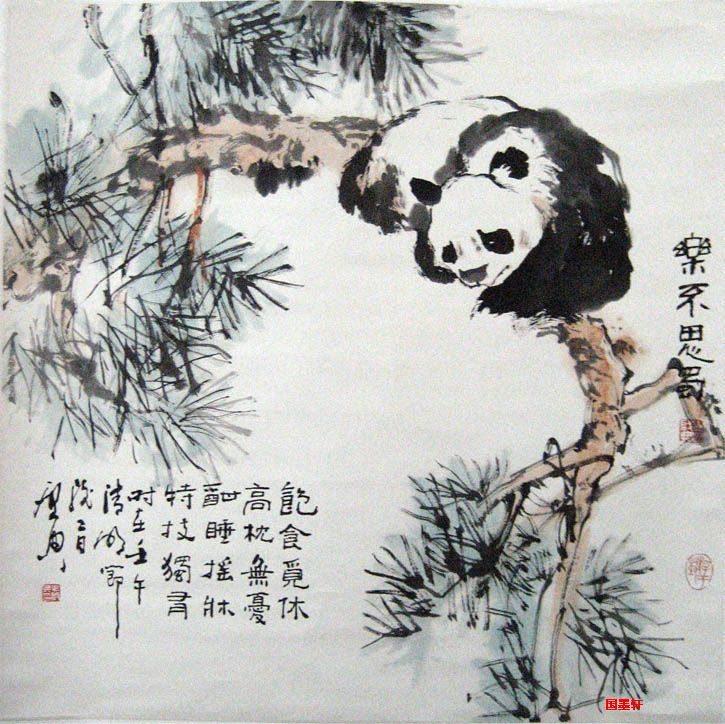 樂不思蜀
飽食覓休
高枕無憂
酣睡搖牀
特技獨有
时在壬午
清明節
後二日
国墨轩